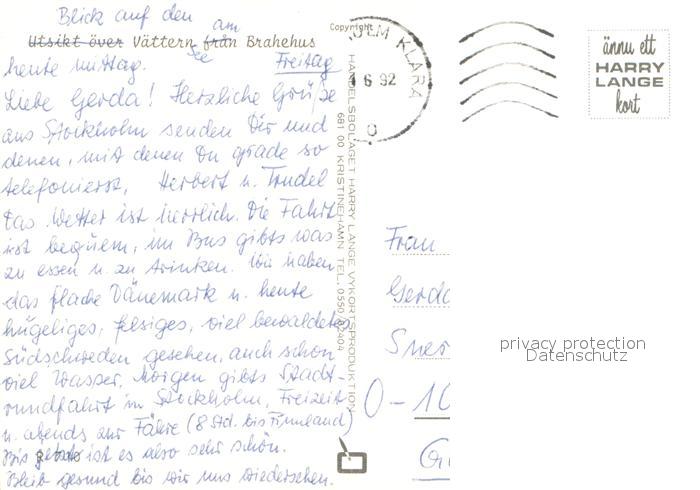 Blick auf den am
Utsikt över Vättern från Brahehus
See
heute mittag. Freitag
Liebe Gerda! Herzliche Grüße
aus Stockholm senden Dir und
denen, mit denen Du grade so
telefonierst, Herbert u. Trudel
Das Wetter ist herrlich. Die Fahrt
ist bequem, im Bus gibts was
zu essen u. zu trinken. Wir haben
das flache Dänemark u. heute
hügeliges, felsiges, viel bewaldetes
Südschweden gesehen, auch schon
viel Wasser. Morgen gibts Stadt-
rundfahrt in Stockholm, Freizeit
u. abends zur Fähre (8 Std. bis Finnland)
Bis ist es also sehr schön.
Bleib gesund bis wir uns wiedersehen.
Copyright:
HANDELSBOLAGET HARRY LANGE VYKORTSPRODUKTION
681 00 KRISTINEHAMN TEL. 0550/
KLARA
6 92
ännu ett
HARRY
LANGE
kort
Frau
Gerda
O-10
privacy protection
Datenschutz